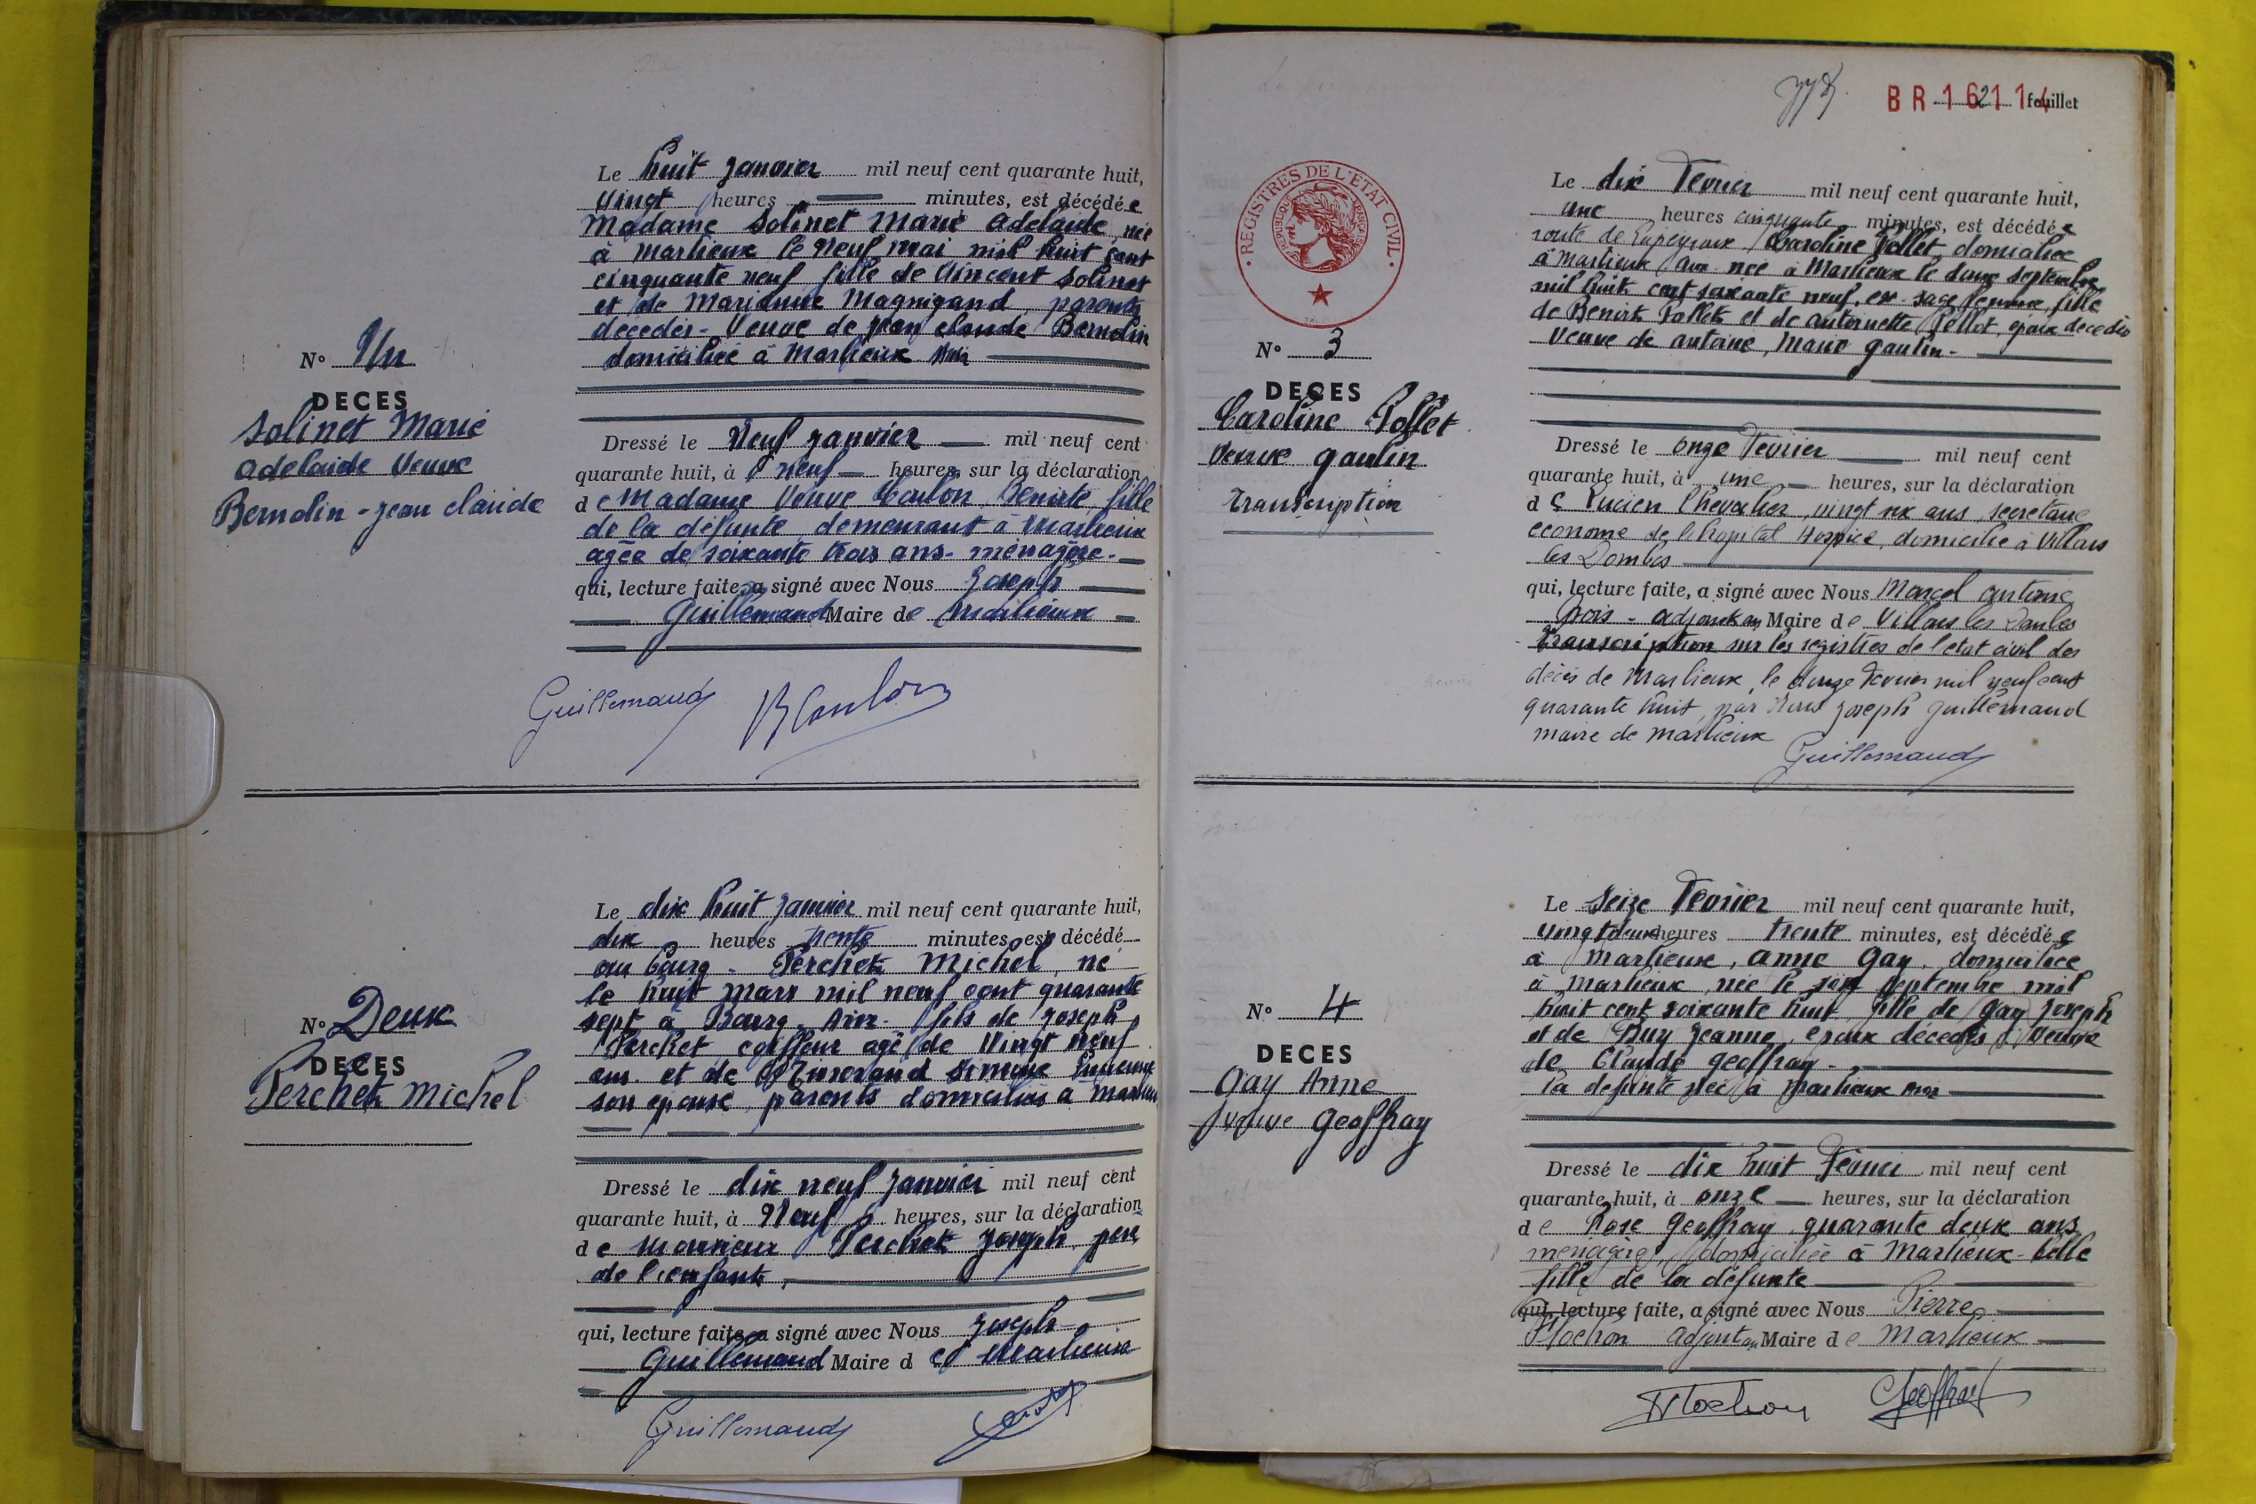 Le huit janvier mil neuf cent quarante huit,
vingt heures minutes, est décédé e
Madame Solinet Marie Adelaide née
à Marlieux le neuf mai mil huit cent
cinquante neuf fille de Vincent Solinet
et de Marianne Magnigand, parents
décédés - Veuve de Jean Claude Bernolin
domiciliée à Marlieux Ain
N° Un
DECES
Solinet Marie
Adelaide Veuve
Bernolin - Jean Claude
Dressé le neuf janvier mil neuf cent
quarante huit, à neuf heures, sur la déclaration
d e Madame Veuve Coulon, Benoite, fille
de la défunte demeurant à Marlieux
agée de soixante trois ans - ménagère -
qui, lecture faite, a signé avec Nous Joseph
Guillemaud Maire de Marlieux
Guillemaud BCoulon
Le dix huit janvier mil neuf cent quarante huit,
dix heures trente minutes, est décédé
au bourg - Perchet Michel, né
le huit mars mil neuf cent quarante
sept à Bourg, Ain - fils de Joseph
Perchet coiffeur agé de vingt neuf
ans et de Simone
son épouse, parents domiciliés à Marlieux
N° Deux
DECES
Perchet Michel
Dressé le dix neuf janvier mil neuf cent
quarante huit, à Neuf heures, sur la déclaration
d e Monsieur Perchet Joseph, père
de l'enfant,
qui, lecture faite, a signé avec Nous Joseph
Guillemaud Maire d e Marlieux
Guillemaud
BR 16211 feuillet
2
REGISTRES DE L'ETAT CIVIL
REPUBLIQUE FRANÇAISE
Le dix Fevrier mil neuf cent quarante huit,
une heures cinquante minutes, est décédé e
route de Caroline Pollet domiciliée
à Marlieux Ain née à Marlieux le douze septembre
mil huit cent soixante neuf, ex-sage femme, fille
de Benoit Pollet et de Antoinette époux décédés
Veuve de Antoine, Marie Gaulin -
N° 3
DECES
Caroline Pollet
Veuve Gaulin
Transcription
Dressé le onze Fevrier mil neuf cent
quarante huit, à une heures, sur la déclaration
d e Lucien Chevalier, vingt six ans, secretaire
econome de l'hopital Hospice, domicilié à Villars
les Dombes
qui, lecture faite, a signé avec Nous Marcel Antoine
Grois - adjoint au Maire de Villars les Dombes
Transcription sur les registres de l'état civil des
décès de Marlieux, le douze Fevrier mil neuf cent
quarante huit, par Nous Joseph Guillemaud
maire de Marlieux
Guillemaud
Le Seize Fevrier mil neuf cent quarante huit,
vingt deux heures trente minutes, est décédé e
à Marlieux, Anne Gay, domiciliée
à Marlieux, née le six Septembre mil
huit cent soixante huit fille de Gay Joseph
et de Jeanne, époux décédés, Veuve
de Claude Geoffray -
la défunte née à Marlieux Ain
N° 4
DECES
Gay Anne
Veuve Geoffray
Dressé le dix huit Fevrier mil neuf cent
quarante huit, à onze heures, sur la déclaration
d e Rose Geoffray quarante deux ans,
ménagère, domiciliée à Marlieux - belle
fille de la défunte
qui, lecture faite, a signé avec Nous Pierre
Flochon Adjoint au Maire de Marlieux
Flochon Geoffray